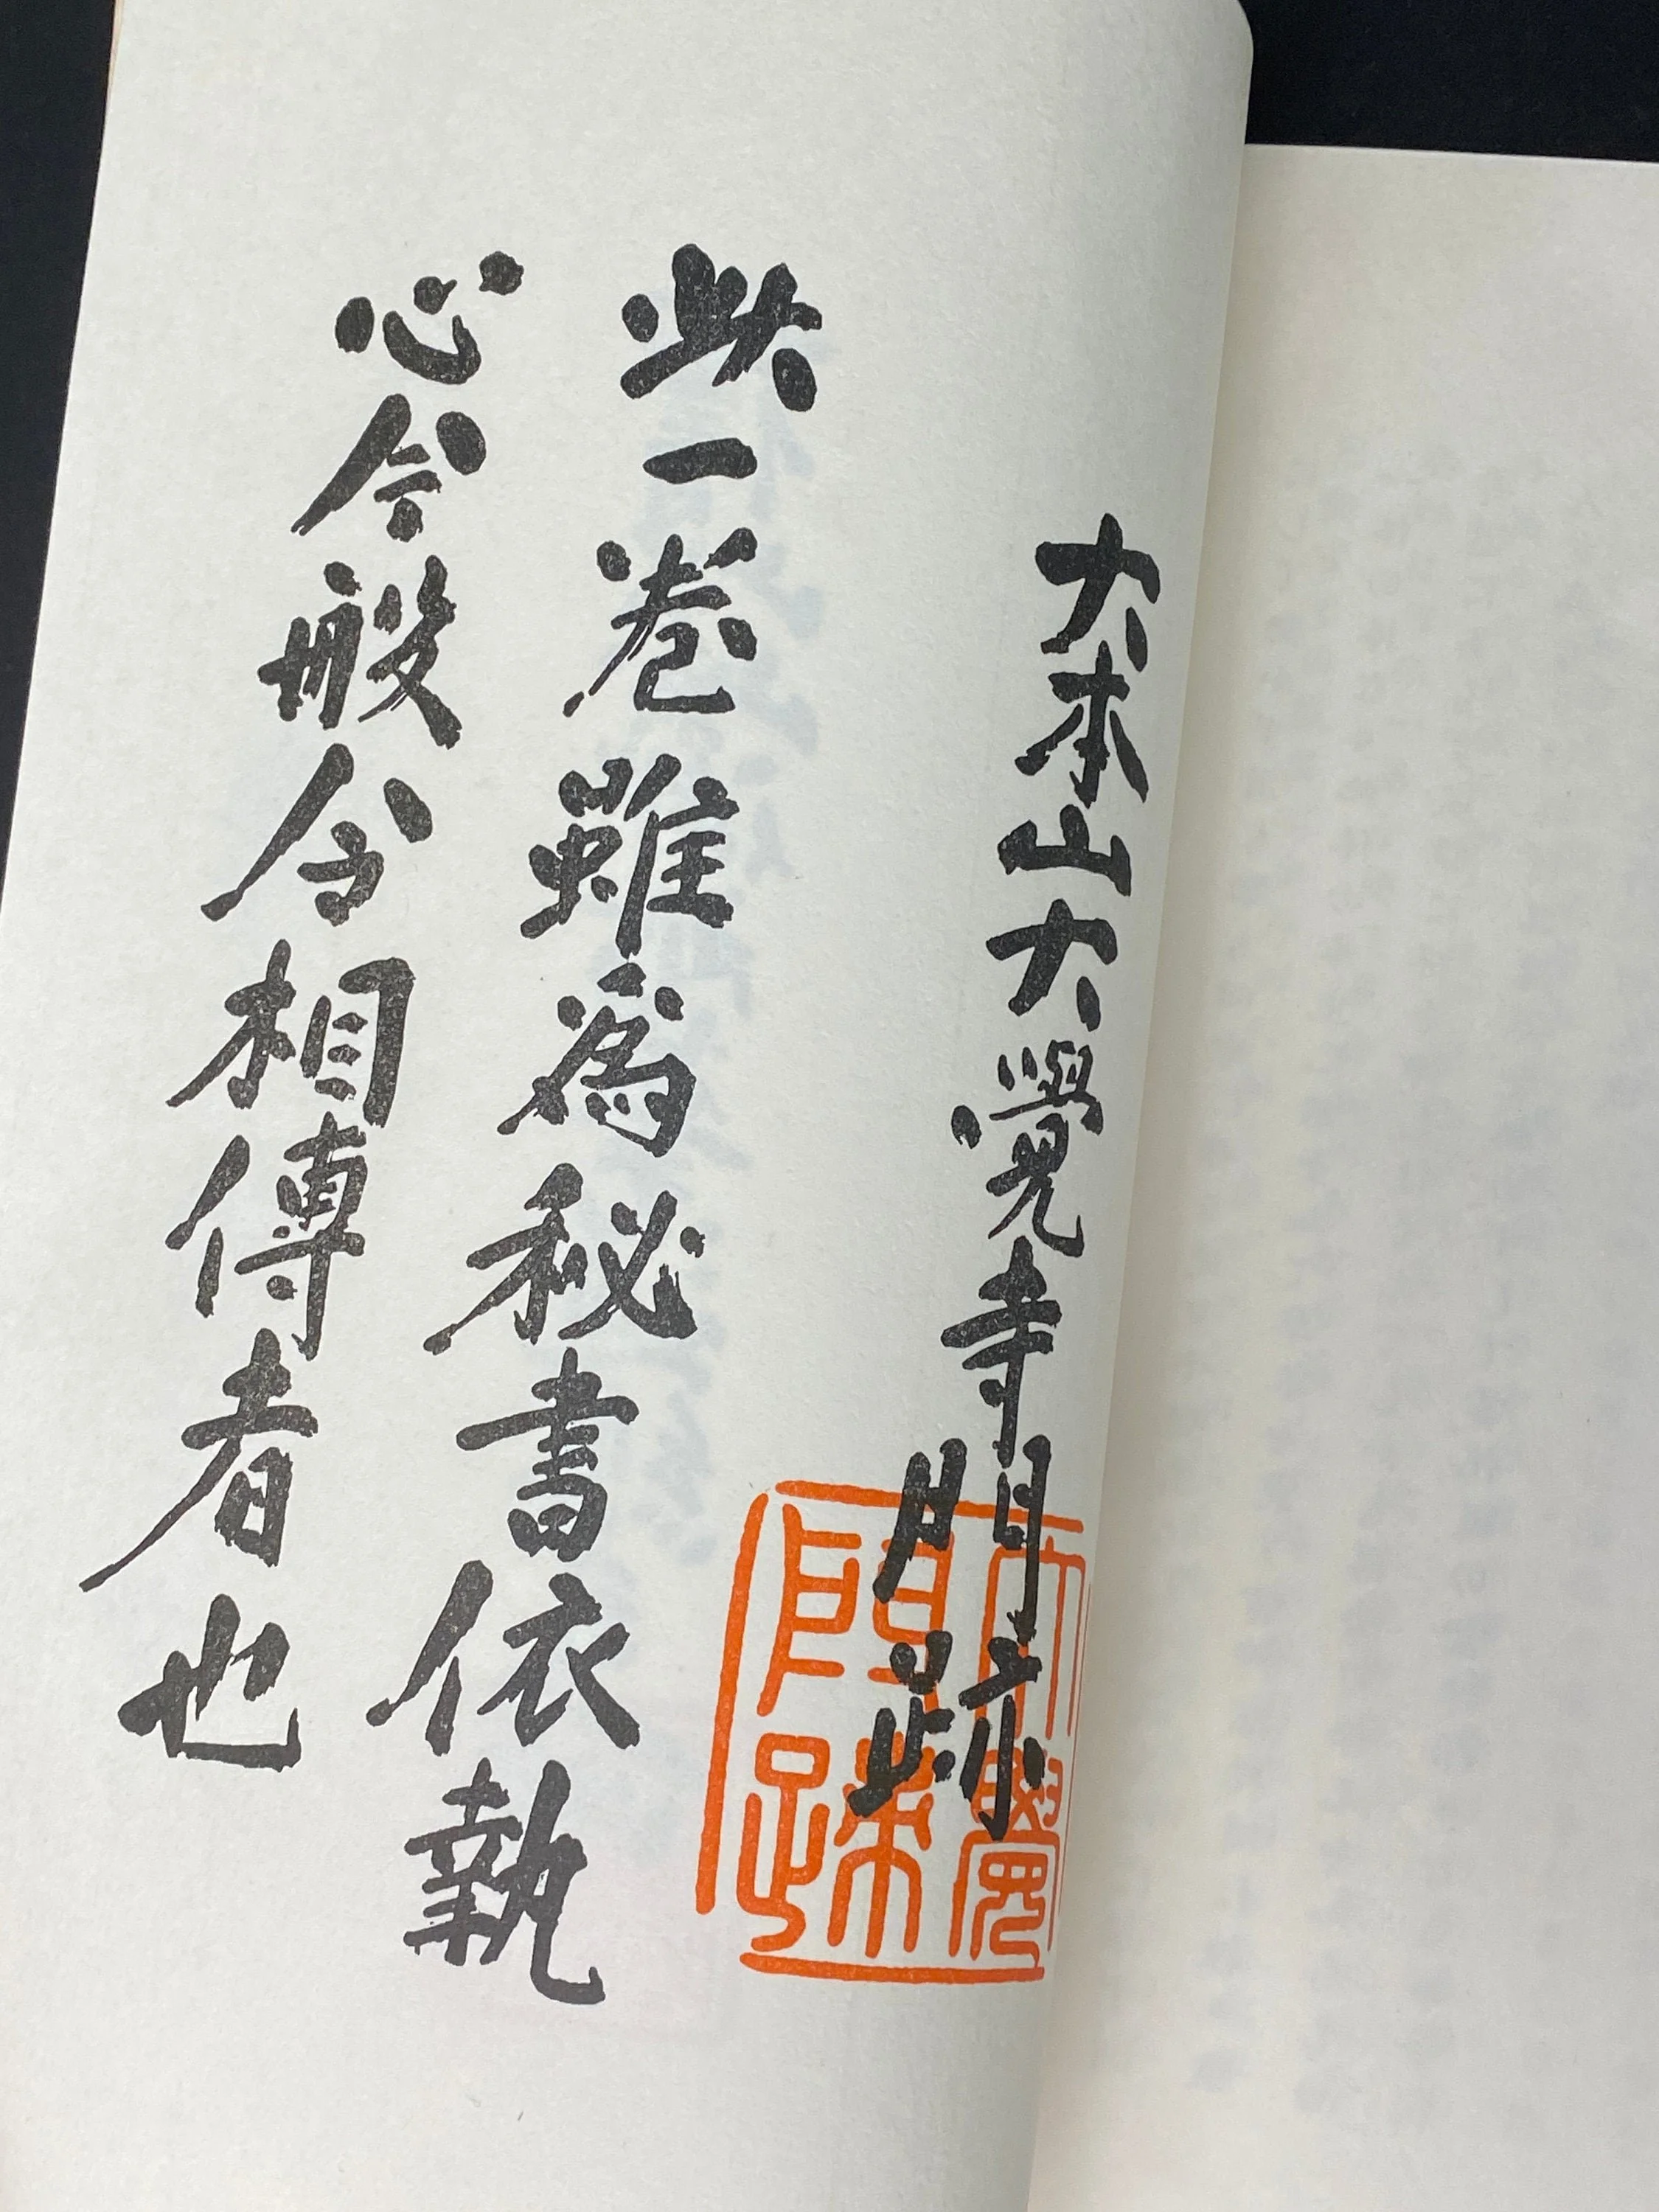 大本山大覺寺門跡
大覺
門跡
此一卷雖為秘書依執
心今般令相傳者也